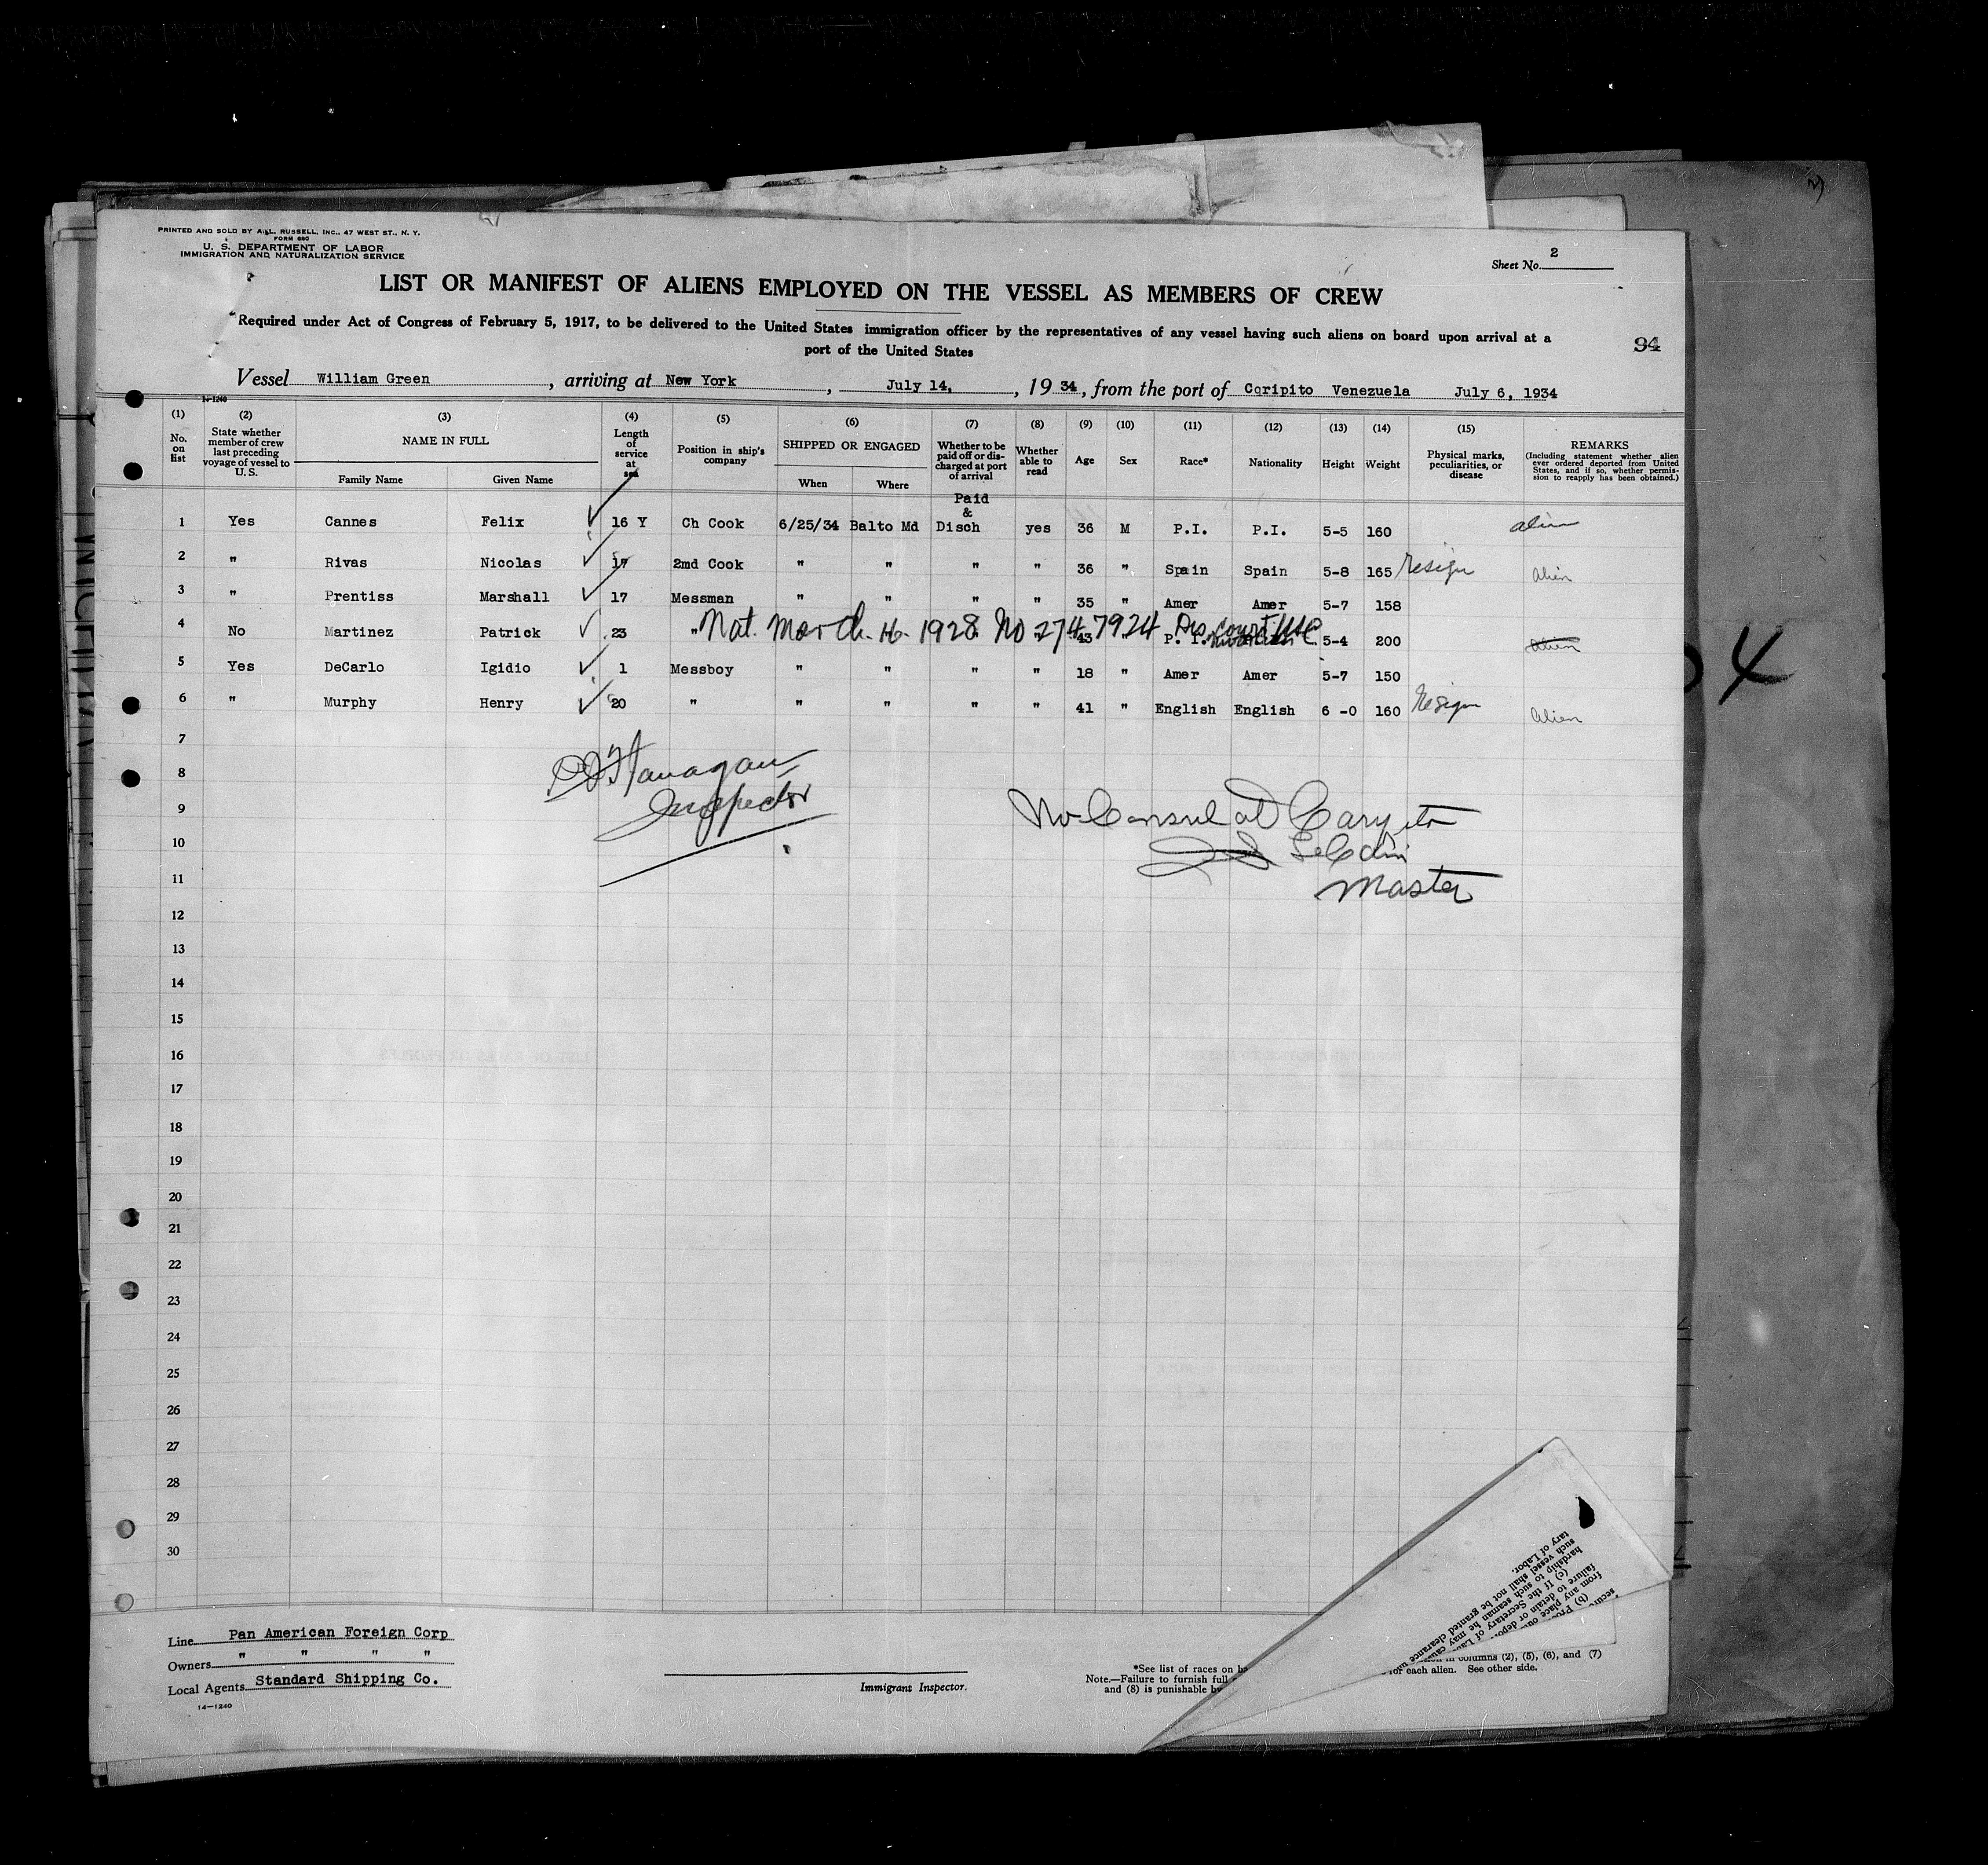 PRINTED AND SOLD BY A. L. RUSSELL, INC., 47 WEST ST., N. Y.
FORM 680
U. S. DEPARTMENT OF LABOR
IMMIGRATION AND NATURALIZATION SERVICE
Sheet No. 2
LIST OR MANIFEST OF ALIENS EMPLOYED ON THE VESSEL AS MEMBERS OF CREW
Required under Act of Congress of February 5, 1917, to be delivered to the United States immigration officer by the representatives of any vessel having such aliens on board upon arrival at a
port of the United States
94
Vessel William Green, arriving at New York, July 14, 1934, from the port of Caripito Venezuela July 6, 1934
14-1240
(1) (2) (3) (4) (5) (6) (7) (8) (9) (10) (11) (12) (13) (14) (15)
No. on list
State whether member of crew last preceding voyage of vessel to U. S.
NAME IN FULL
Family Name Given Name
Length of service at sea
Position in ship's company
SHIPPED OR ENGAGED
When Where
Whether to be paid off or discharged at port of arrival
Whether able to read
Age Sex Race* Nationality Height Weight
Physical marks, peculiarities, or disease
REMARKS
(Including statement whether alien ever ordered deported from United States, and if so, whether permission to reapply has been obtained.)
Paid
&
1 Yes Cannes Felix 16 Y Ch Cook 6/25/34 Balto Md Disch yes 36 M P.I. P.I. 5-5 160 alien
2 " Rivas Nicolas 17 2md Cook " " " " 36 " Spain Spain 5-8 165 resign alien
3 " Prentiss Marshall 17 Messman " " " " 35 " Amer Amer 5-7 158
4 No Martinez Patrick 23 " Nat. March 16 1928 No 2747924 43 P. I. 5-4 200 alien
5 Yes DeCarlo Igidio 1 Messboy " " " " 18 " Amer Amer 5-7 150
6 " Murphy Henry 20 " " " " " 41 " English English 6-0 160 Resign alien
7
8
Flanagan
Inspector
9
No Consul at Caripito
10
11
Master
12
13
14
15
16
17
18
19
20
21
22
23
24
25
26
27
28
29
30
Line Pan American Foreign Corp
Owners " " " "
Local Agents Standard Shipping Co.
14-1240
Immigrant Inspector.
*See list of races on
Note.—Failure to furnish full
and (8) is punishable
in columns (2), (5), (6), and (7)
for each alien. See other side.
tary of Labor.
such vessel shall not be granted clearance